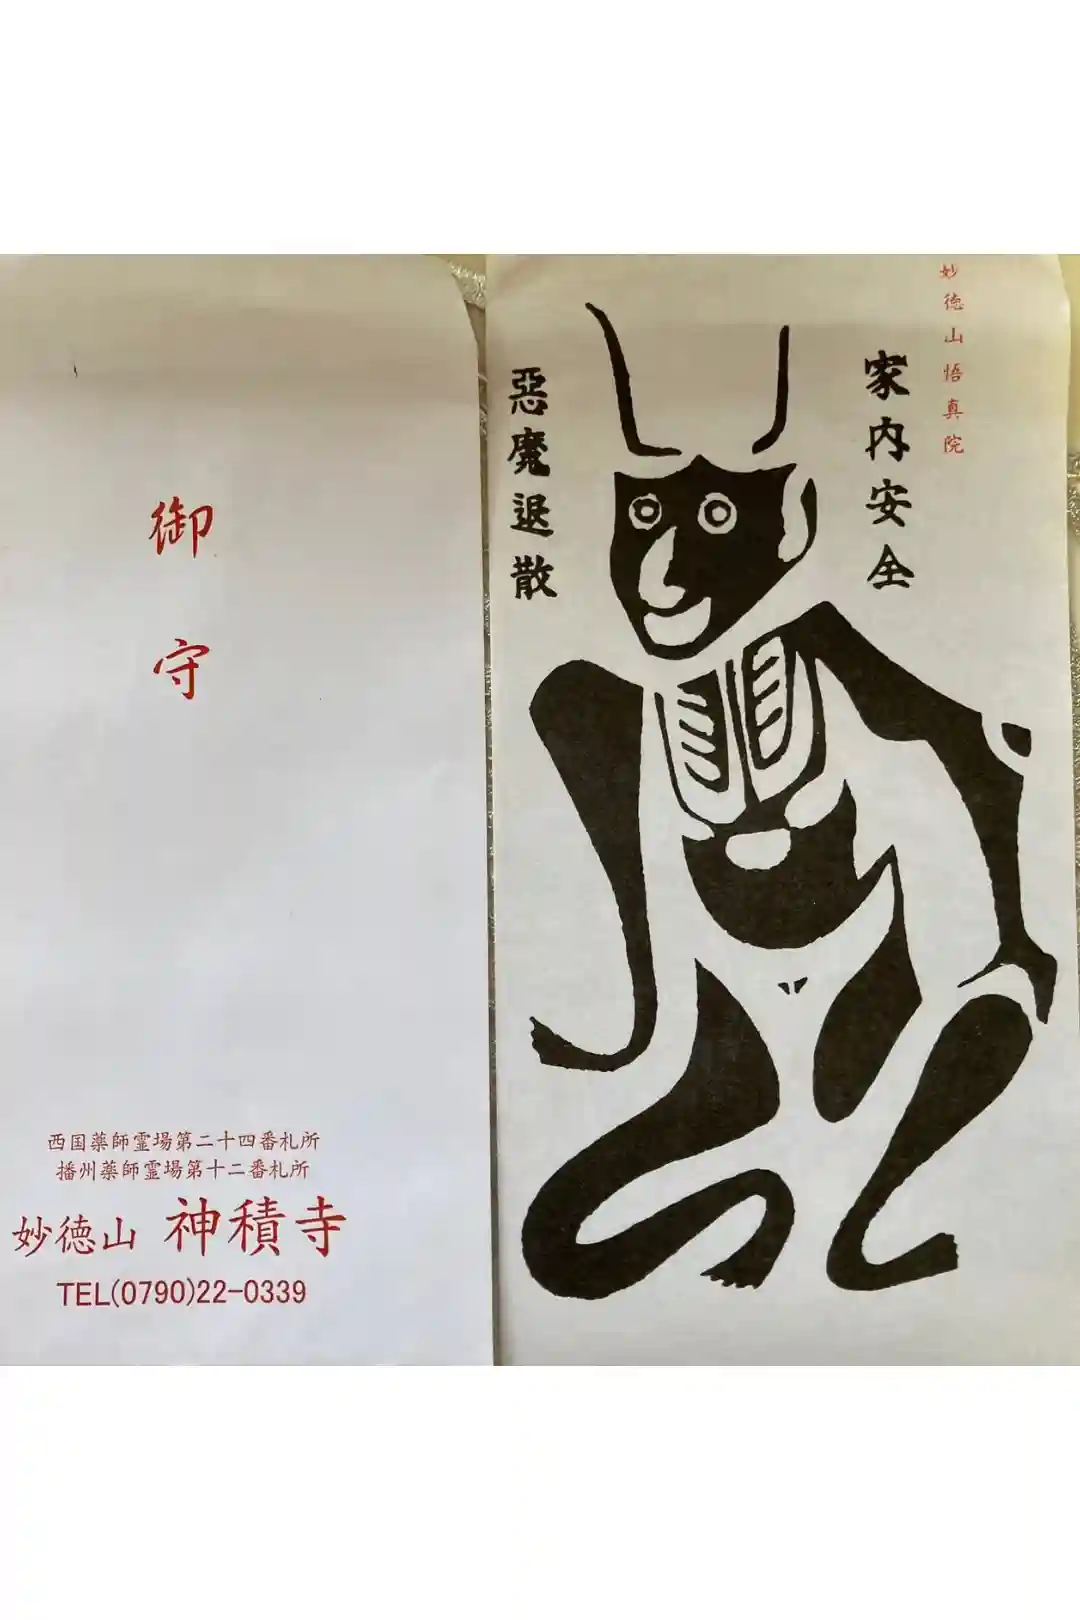 御守
西国薬師霊場第二十四番札所
播州薬師霊場第十二番札所
妙徳山 神積寺
TEL(0790)22-0339
妙徳山悟真院
家内安全
惡魔退散